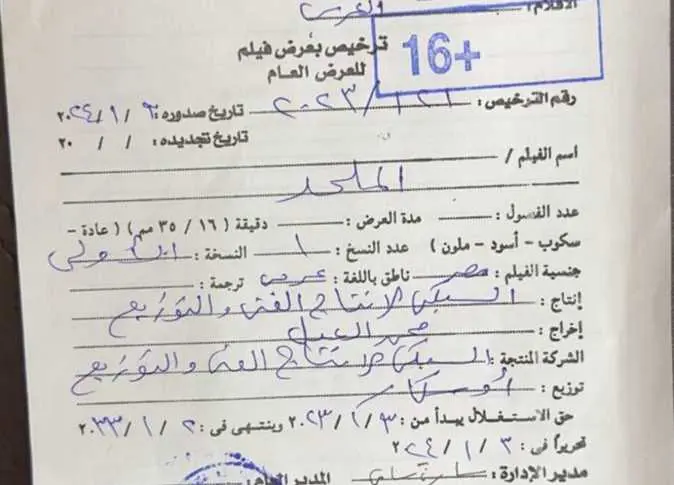 الأفلام : العربى
16+
ترخيص بعرض فيلم
للعرض العام
رقم الترخيص : ١٢١ / ٢٠٢٣ تاريخ صدوره : ٦ / ١ / ٢٠٢٤
تاريخ تجديده : / / ٢٠
اسم الفيلم /
الملحد
عدد الفصول : مدة العرض : دقيقة ( ١٦ / ٣٥ مم ) ( عادة -
سكوب - أسود - ملون ) عدد النسخ : ١ النسخة : الأولى
جنسية الفيلم : مصر ناطق باللغة : عربى ترجمة :
إنتاج : السبكى للإنتاج الفنى والتوزيع
إخراج : محمد العدل
الشركة المنتجة : السبكى للإنتاج الفنى والتوزيع
توزيع : أوسكار
حق الاستغلال يبدأ من : ٣ / ١ / ٢٠٢٣ وينتهى فى : ٢ / ١ / ٢٠٣٣
تحريراً فى : ٣ / ١ / ٢٠٢٤
مدير الإدارة : المدير العام :